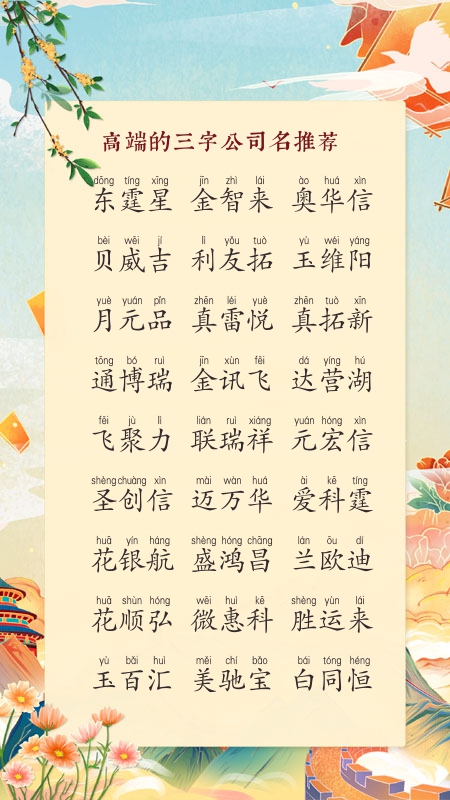 高端的三字公司名推荐
dōng tíng xīng jīn zhì lái ào huá xìn
东霆星 金智来 奥华信
bèi wēi jí lì yǒu tuò yù wéi yáng
贝威吉 利友拓 玉维阳
yuè yuán pǐn zhēn léi yuè zhēn tuò xīn
月元品 真雷悦 真拓新
tōng bó ruì jīn xùn fēi dá yíng hú
通博瑞 金讯飞 达营湖
fēi jù lì lián ruì xiáng yuán hóng xìn
飞聚力 联瑞祥 元宏信
shèng chuàng xìn mài wàn huá ài kē tíng
圣创信 迈万华 爱科霆
huā yín háng shèng hóng chāng lán ōu dí
花银航 盛鸿昌 兰欧迪
huā shùn hóng wēi huì kē shèng yùn lái
花顺弘 微惠科 胜运来
yù bǎi huì měi chí bǎo bái tóng héng
玉百汇 美驰宝 白同恒